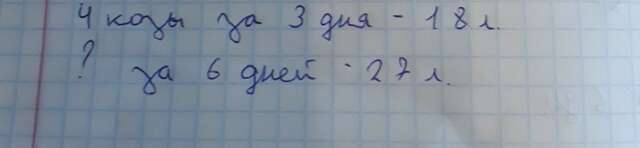 4 козы за 3 дня - 18 л.
? за 6 дней - 27 л.